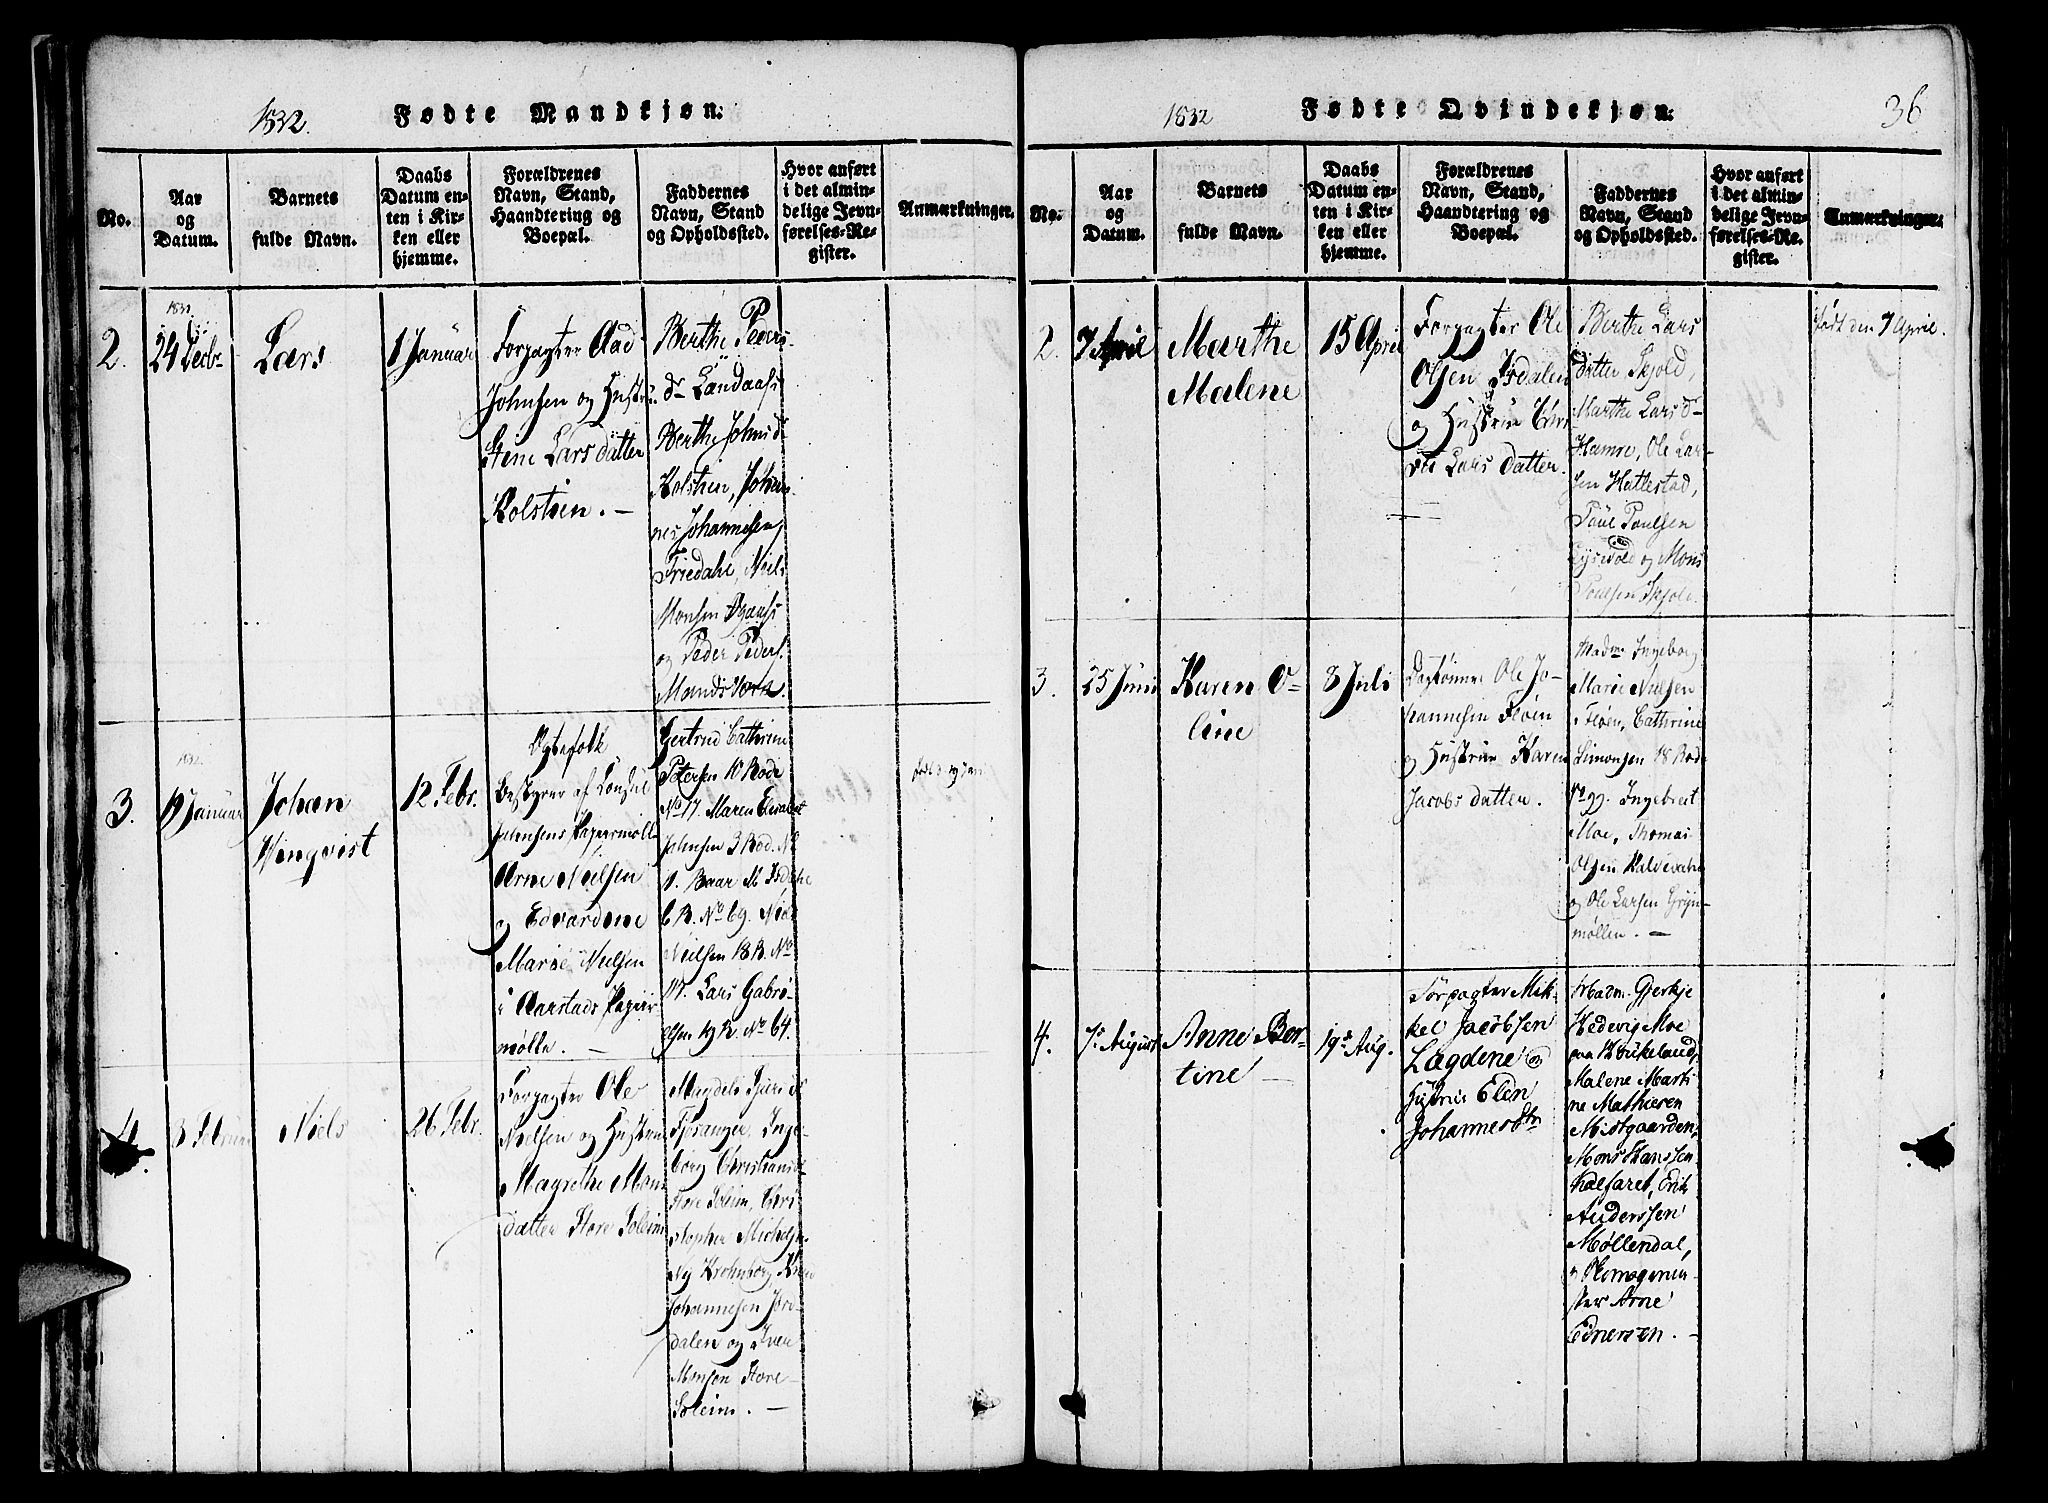 1832.
Fødte Mandkjøn.
No.
Aar
og
Datum.
Barnets
fulde Navn.
Daabs
Datum en-
ten i Kir-
ken eller
hjemme.
Forældrenes
Navn, Stand,
Haandtering og
Boepæl.
Faddernes
Navn, Stand
og Opholdssted.
Hvor anført
i det almin-
delige Jevn-
førelses-Re-
gister.
Anmærkninger.
2.
1831.
24 Decbr
Lars
1 Januar
Forpagter Aad
Johnsen og Hustru
Stine Lars datter
Kolstien. —
Berthe Peders-
dr Landaas
Berthe Johnsd
Kolstien, Johan-
nes Johannesen,
Friedahl, Niels
Monsen
og Peder Peders.
3.
1832.
19 Januar
Johan
Winqvist
12 Febr.
Ægtefolk
Bestyrer af Consul
Jahnsens Papiermølle
Arne Nielsen
og Edvardine
Marie Nielsen
i Aarstads Papiir
mølle. —
Gertrud Cathrine
Petersen 10 Rode
No 17. Maren Elisabet
Jahnsen 3 Rod. No
1. Baar M Isdahl
6 R. No 69. Niels
Nielsen 18 R. No
17. Lars Gabri-
elsen 19 R. No 64.
19 Jan
4.
3 Februar
Niels
26 Febr.
Forpagter Ole
Nielsen og Hustru
Magrethe Mons
datter Store Soleim
Magdeli
Fjøsanger, Inge-
borg Christiansd
Store Soleim, Chri-
stopher Michels
Ny Krohnborg, Knud
Johannesen Jor-
dalen og Iver
Monsen Store
Soleim. —
1832
Fødte Qvindekjøn.
36
No.
Aar
og
Datum.
Barnets
fulde Navn.
Daabs
Datum en-
ten i Kir-
ken eller
hjemme.
Forældrenes
Navn, Stand,
Haandtering og
Boepæl.
Faddernes
Navn, Stand
og Opholdssted.
Hvor anført
i det almin-
delige Jevn-
førelses-Re-
gister.
Anmærkninger.
2.
7 April
Marthe
Malene
15 April
Forpagter Ole
Olsen Isdalen
og Hustrue Chri
Lars datter.
Berthe Lars
datter Skjold,
Marthe Lars d-
Hamre, Ole Lar-
sen Hattestad,
Poul Poulsen
og Mons
Poulsen Skjold.
Født den 7 April.
3.
25 Juni
Karen O-
line
8 Juli
Ole Jo-
hannesen Fløen
og Hustrue Karen
Jacobs datter.
Madm Ingeborg
Marie Nielsen
Fløen, Cathrine
Simonsen 18 Rod
No 99. Ingebret
Moe, Thomas
Olsen Kalvevahn
og Ole Larsen Gryn-
møllen. —
4.
7 August
Anne Ber-
tine —
19 Aug.
Forpagter Mik-
kel Jacobsen
Lægdene og
Hustrue Elen
Johannesdtr
Madm. Gjertje
Hedevig Moe
paa Kirkeland,
Malene Marti
ne Mathiesen
Mistgaarden,
Mons Hanssen
Kalfaret, Erik
Anderssen
Møllendal,
og Skomagerme-
ster Arne
Ednersen. —